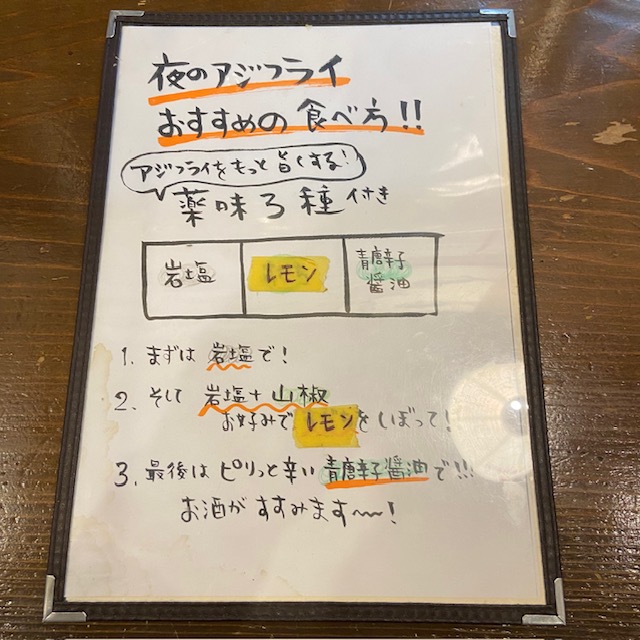 夜のアジフライ
おすすめの食べ方!!
アジフライをもっと旨くする!
薬味3種付き
岩塩
レモン
青唐辛子
醤油
1. まずは岩塩で!
2. そして岩塩+山椒
お好みでレモンをしぼって!
3. 最後はピリっと辛い青唐辛子醤油で!!!
お酒がすすみます〜!